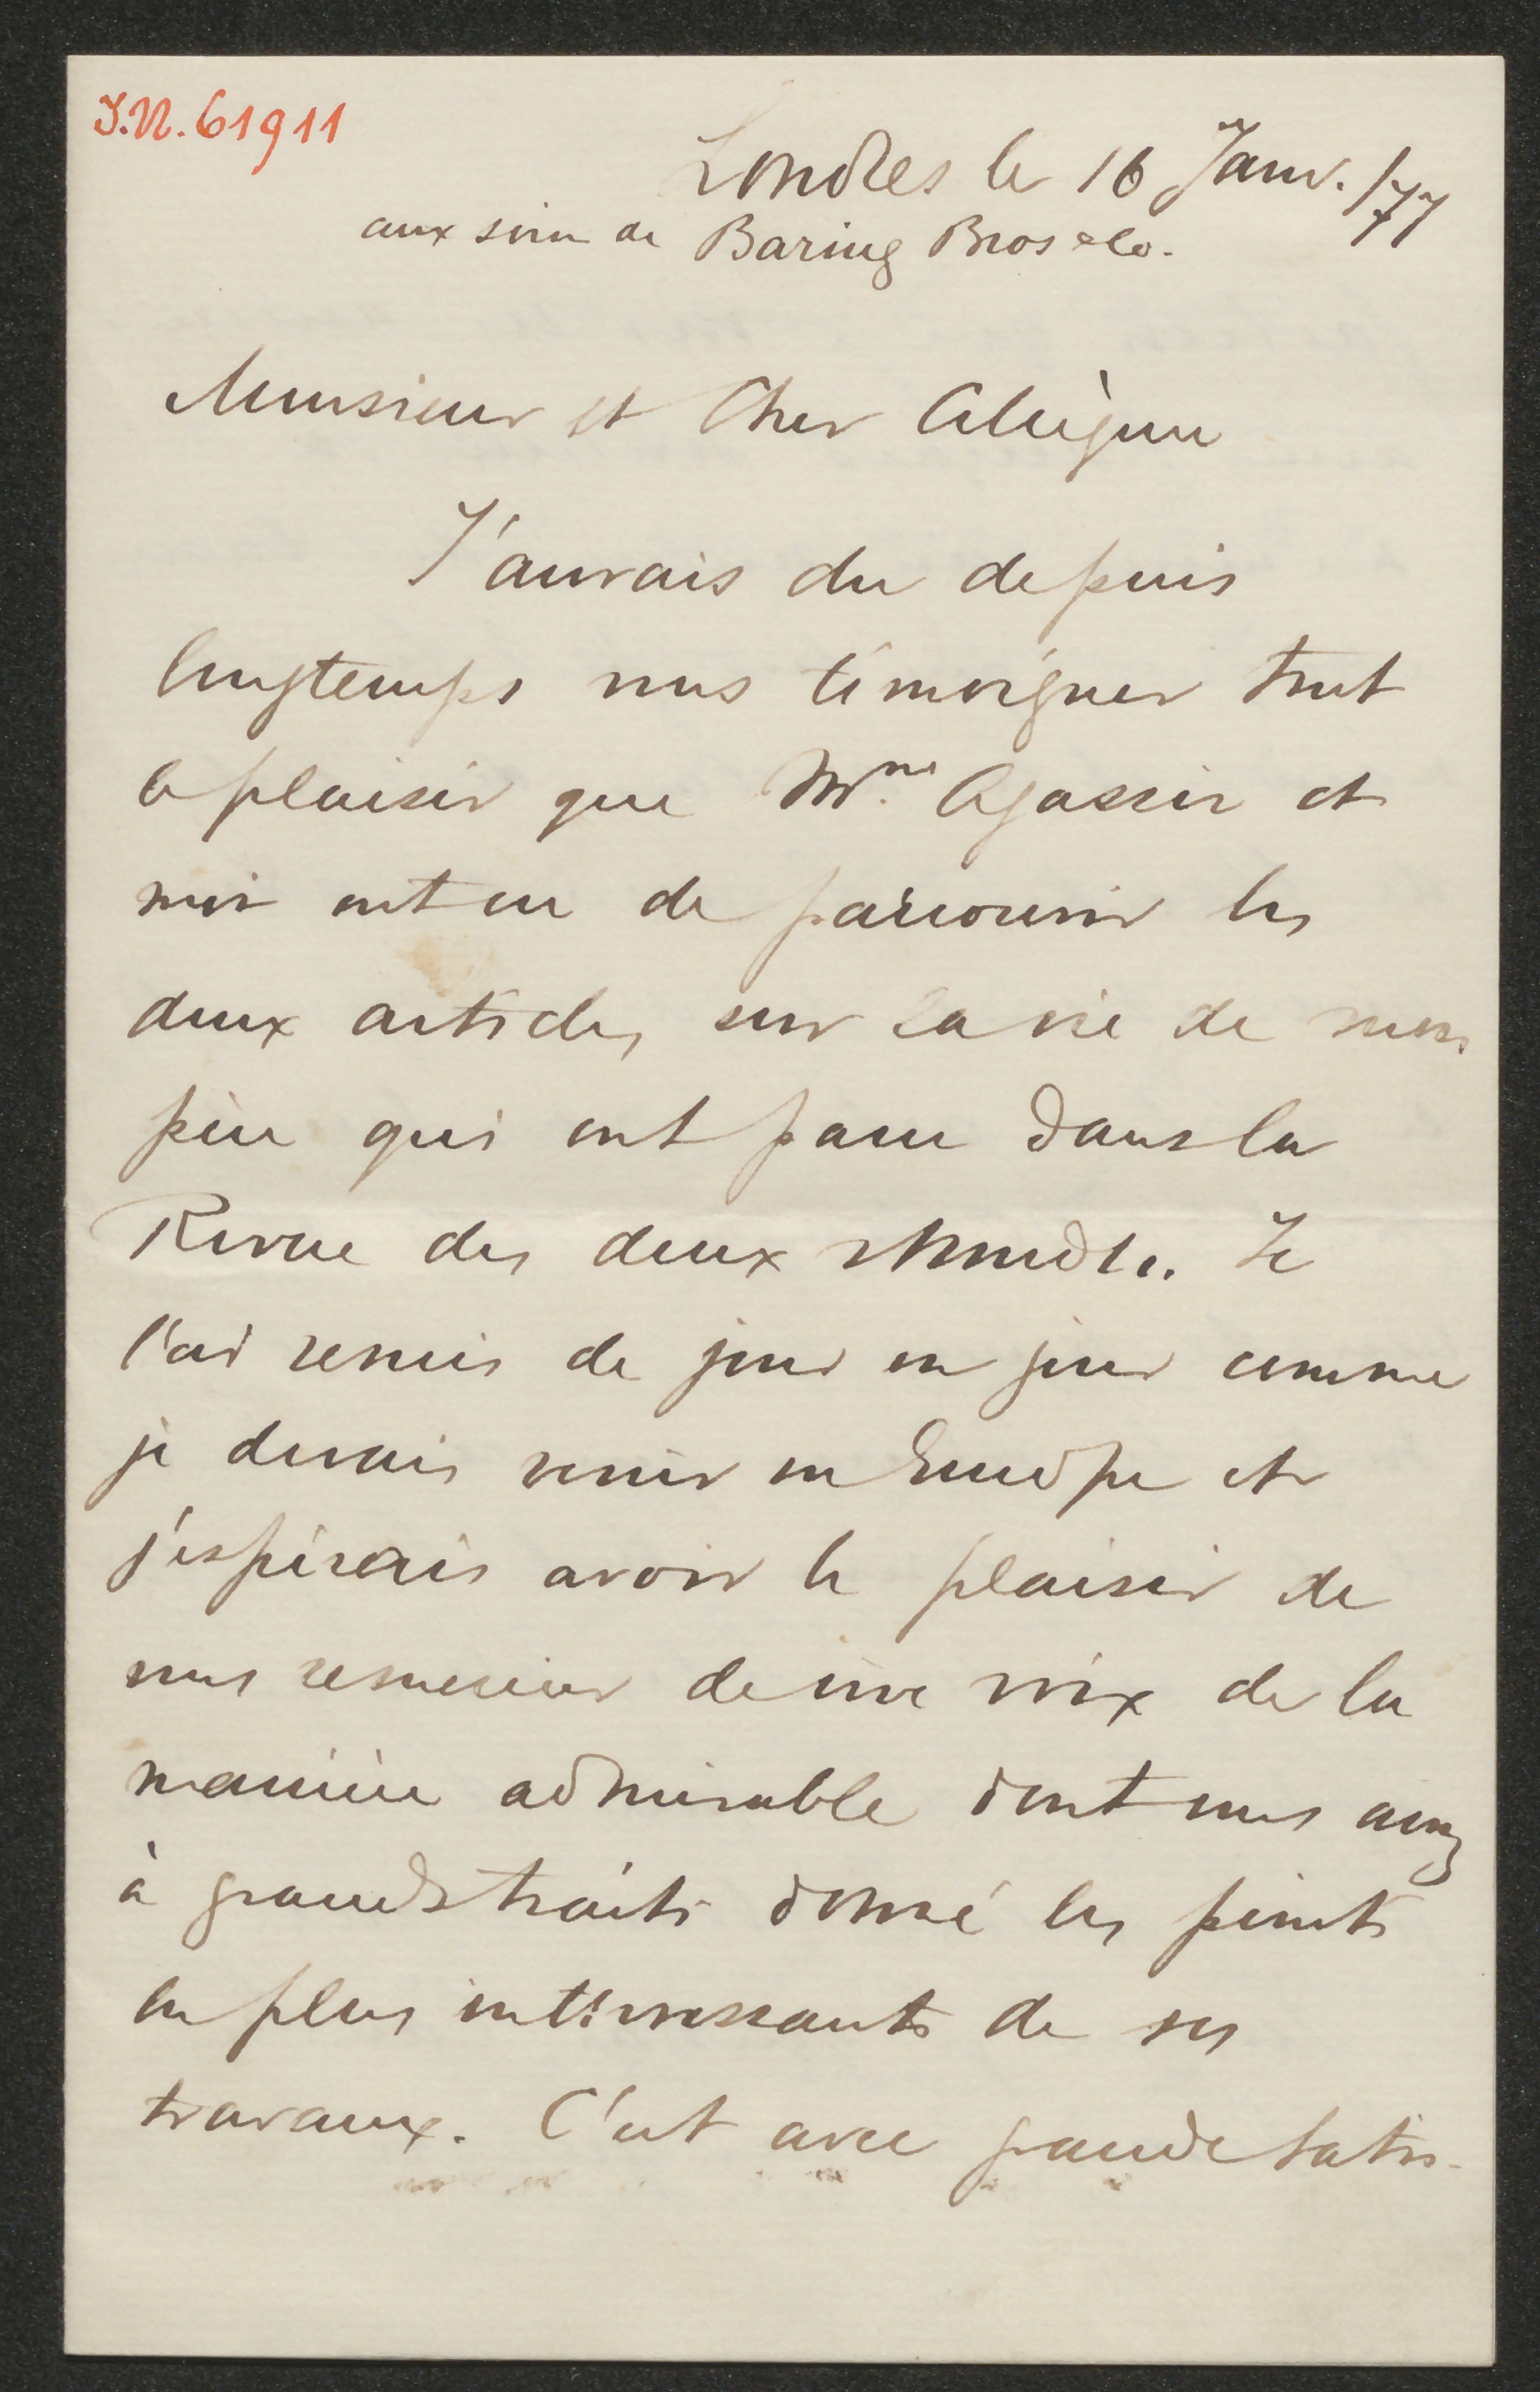 I.N. 61911
Londres le 16 Janv. /77
aux soin de Baring Bros & Co.
Monsieur et Cher Collègue
J'aurais du depuis
longtemps vous témoigner tout
le plaisir que Mme Agassiz et
moi ont eu de parcourir les
deux articles sur la vie de mon
père qui ont paru dans la
Revue des deux Mondes. Je
l'ai remis de jour en jour comme
je devais venir en Europe et
j'espérais avoir le plaisir de
vous remercier de vive voix de la
manière admirable dont vous avez
à grands traits donné les points
les plus intéressants de ses
travaux. C'est avec grande satis-